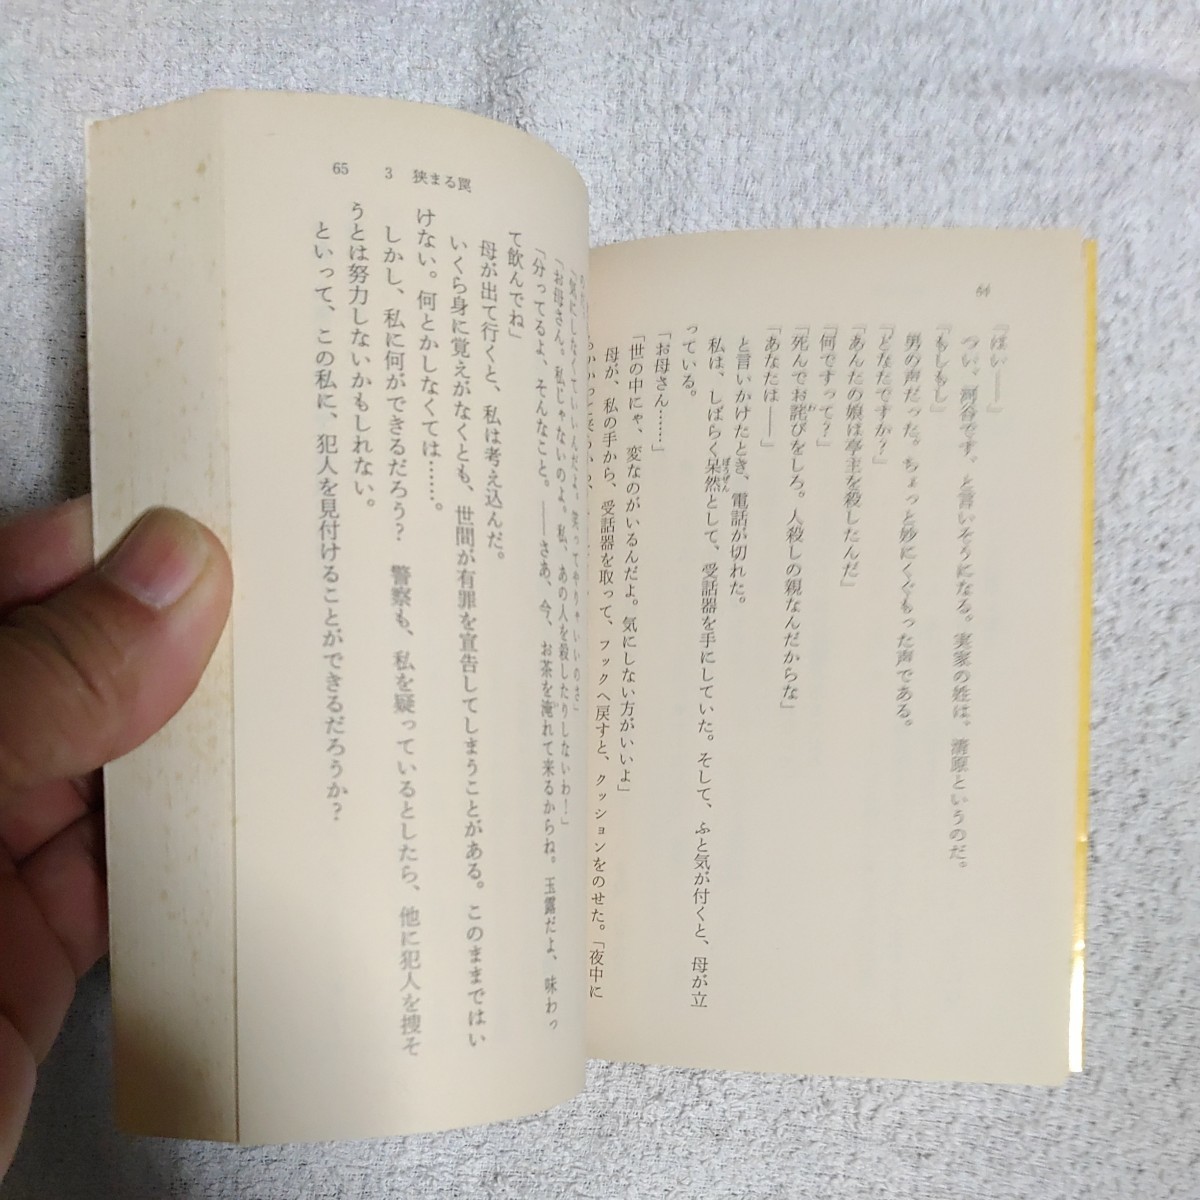 64
「はい——」
つい、河谷です、と言いそうになる。実家の姓は、清原というのだ。
「もしもし」
男の声だった。ちょっと妙にくぐもった声である。
「どなたですか？」
「あんたの娘は亭主を殺したんだ」
「何ですって？」
「死んでお詫びをしろ。人殺しの親なんだからな」
「あなたは——」
と言いかけたとき、電話が切れた。
私は、しばらく呆然として、受話器を手にしていた。そして、ふと気が付くと、母が立
っている。
「お母さん……」
「世の中にゃ、変なのがいるんだよ。気にしない方がいいよ」
母が、私の手から、受話器を取って、フックへ戻すと、クッションをのせた。「夜中に
65 3 狭まる罠
「気にしなくていいんだよ。笑ってやりゃいいのさ」
「お母さん。私じゃないのよ。私、あの人を殺したりしないわ！」
「分ってるよ、そんなこと。——さあ、今、お茶を淹れて来るからね。玉露だよ、味わっ
て飲んでね」
母が出て行くと、私は考え込んだ。
いくら身に覚えがなくとも、世間が有罪を宣告してしまうことがある。このままではい
けない。何とかしなくては……。
しかし、私に何ができるだろう？ 警察も、私を疑っているとしたら、他に犯人を捜そ
うとは努力しないかもしれない。
といって、この私に、犯人を見付けることができるだろうか？